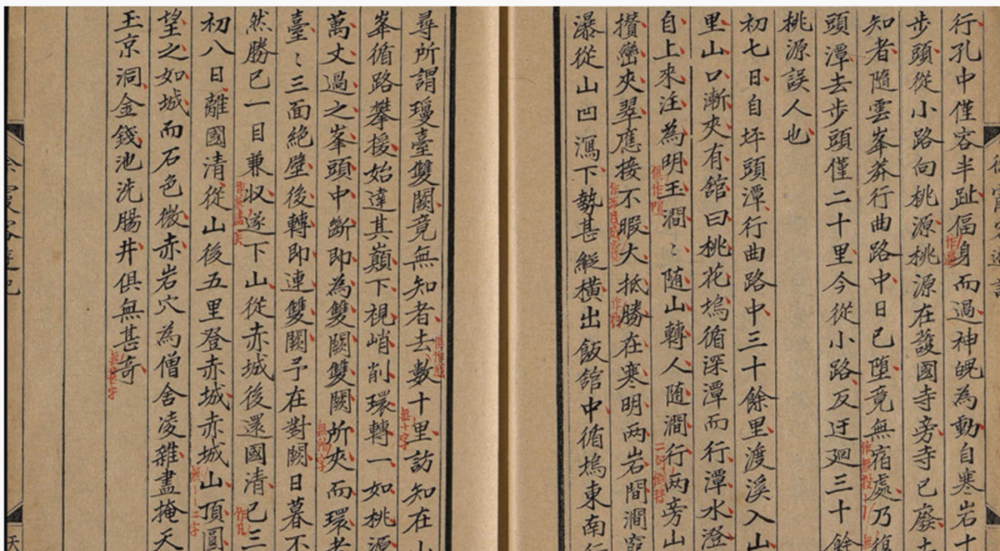 行孔中僅容半趾偪身而過神魄為動自寒岩十
步頭從小路向桃源桃源在護國寺旁寺已廢土
知者隨雲峯莽行曲路中日已墮竟無宿處乃復
頭潭去步頭僅二十里今從小路反迂迴三十餘
桃源誤人也
初七日自坪頭潭行曲路中三十餘里渡溪入山
里山口漸夾有館曰桃花塢循深潭而行潭水澄
自上來注為明玉澗〻隨山轉人隨澗行兩旁山
攢巒夾翠應接不暇大抵勝在寒明兩岩間澗窮
瀑從山凹瀉下勢甚縱橫出飯館中循塢東南行
尋所謂瓊臺雙闕竟無知者去數十里訪知在山
峯循路攀援始達其巔下視峭削環轉一如桃源
萬丈過之峯頭中斷即為雙闕雙闕所夾而環者
臺〻三面絶壁後轉即連雙闕予在對闕日暮不
然勝已一目兼収遂下山從赤城後還國清已三
初八日離國清從山後五里登赤城赤城山頂圓
望之如城而石色微赤岩穴為僧舍凌雜盡掩天
玉京洞金錢池洗腸井俱無甚奇